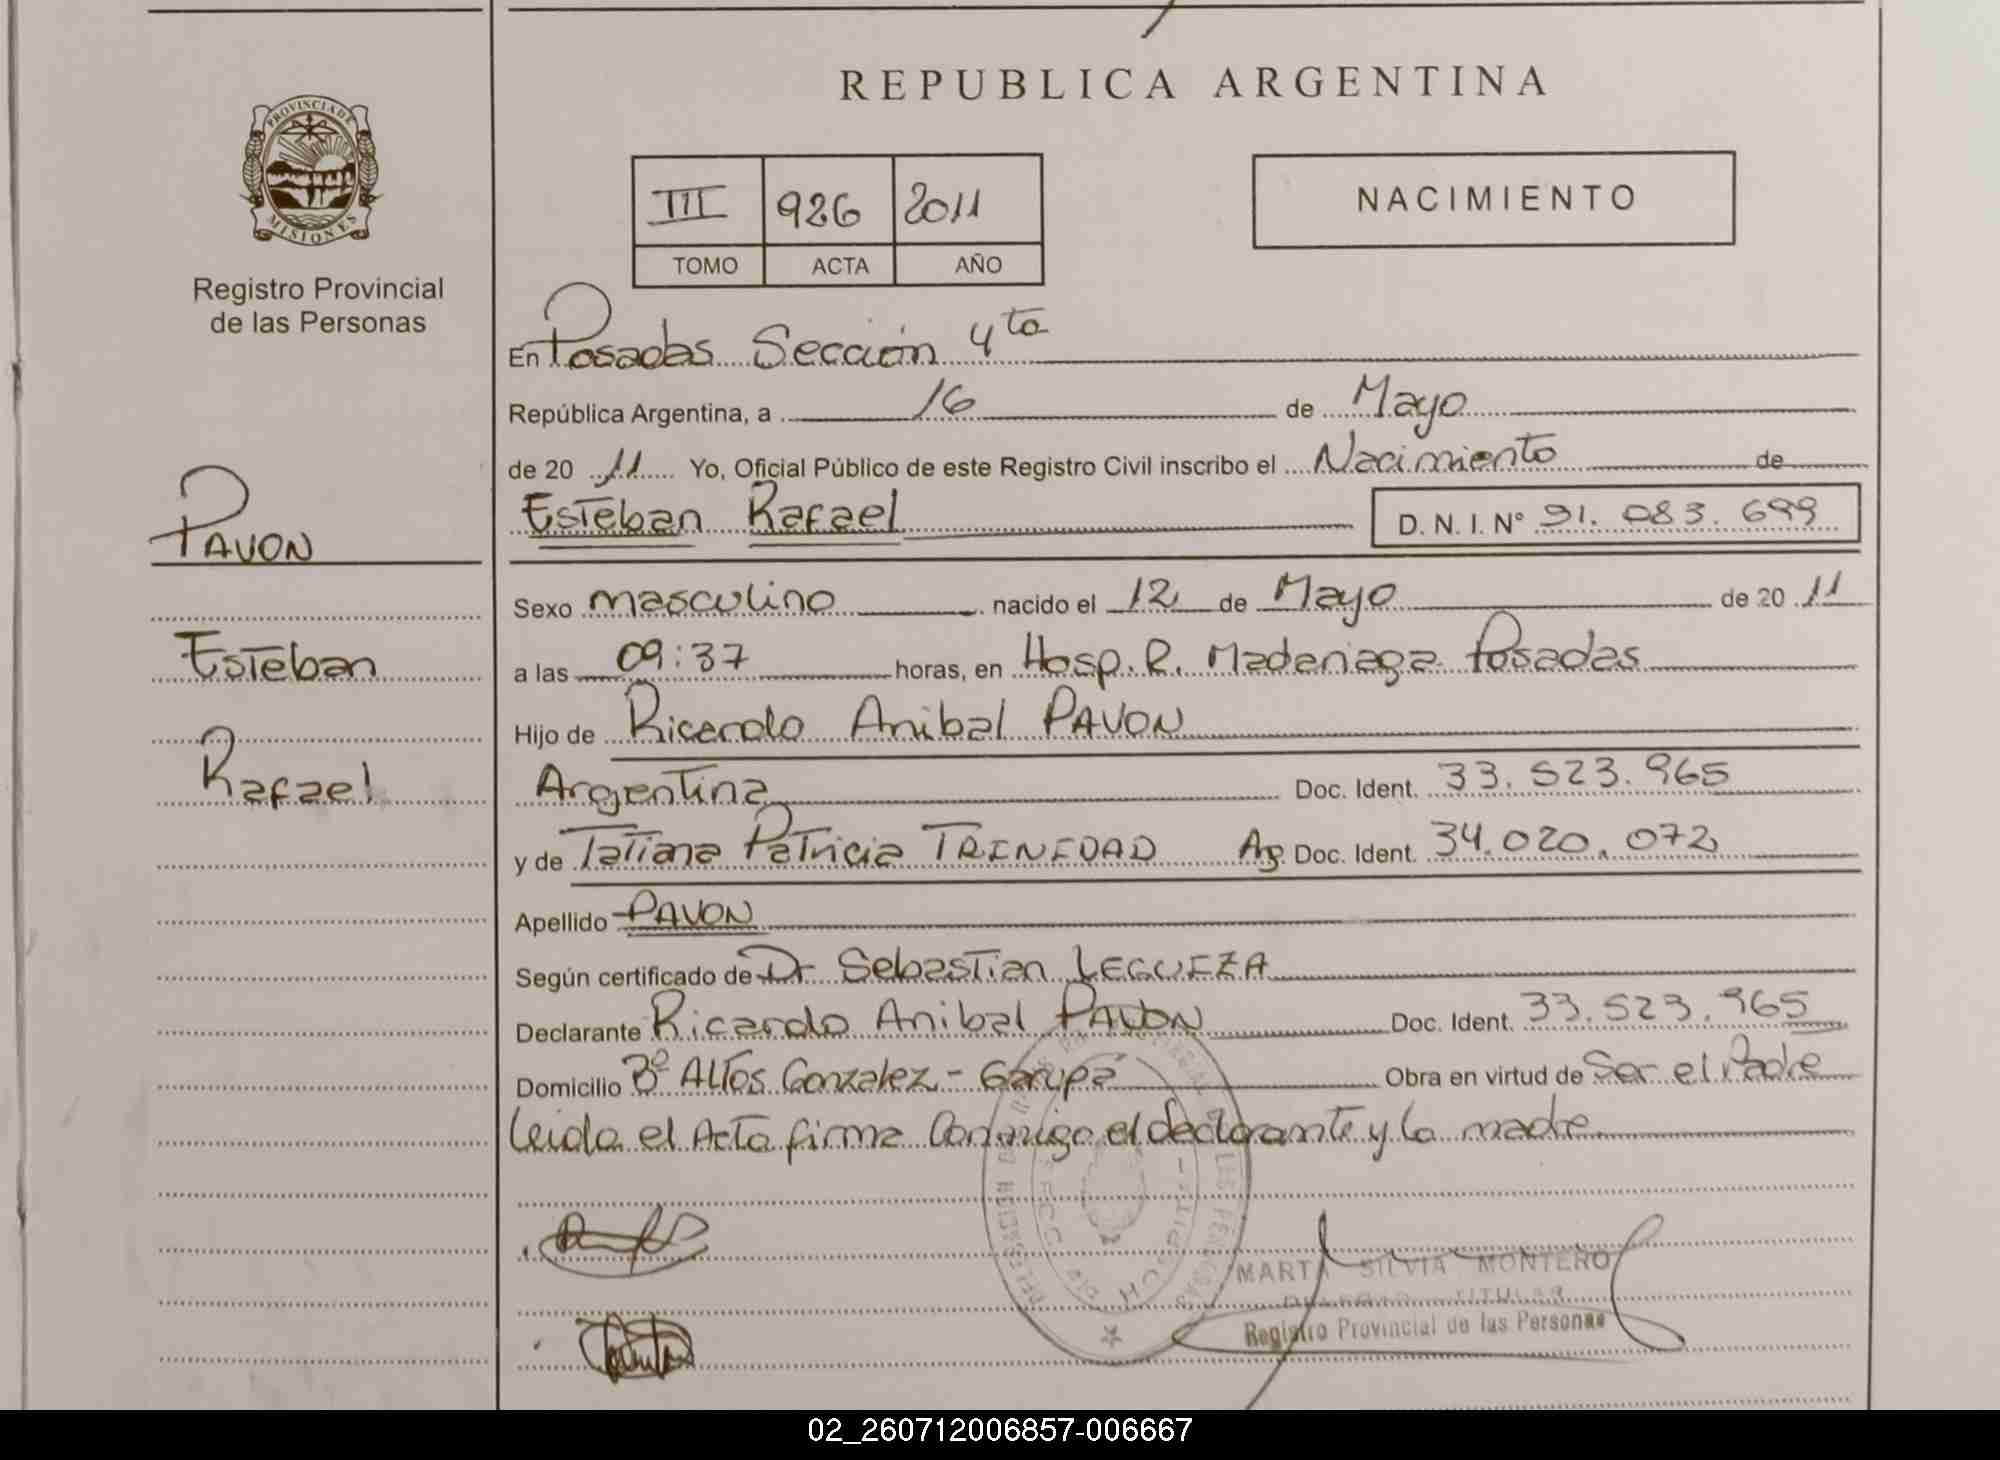 REPUBLICA ARGENTINA
PROVINCIA DE
MISIONES
Registro Provincial
de las Personas
III 926 2011
TOMO ACTA AÑO
NACIMIENTO
En Posadas Sección 4ta
República Argentina, a 16 de Mayo
de 20 11 Yo, Oficial Público de este Registro Civil inscribo el Nacimiento de
PAVON
Esteban Rafael D. N. I. N° 91. 083. 699
Sexo masculino nacido el 12 de Mayo de 20 11
Esteban
a las 09:37 horas, en Hosp. R. Madariaga Posadas
Hijo de Ricardo Anibal PAVON
Rafael
Argentina Doc. Ident. 33. 523. 965
y de Tatiana Patricia TRINIDAD Ag Doc. Ident. 34.020.072
Apellido PAVON
Según certificado de Dr Sebastian LEGUIZA
Declarante Ricardo Anibal PAVON Doc. Ident. 33. 523. 965
Domicilio Bº Altos Gonzalez - Garupa Obra en virtud de Ser el Padre
leida el Acta firma Conmigo el declarante y la madre
MARTA SILVIA MONTERO
TITULAR
Registro Provincial de las Personas
02_260712006857-006667